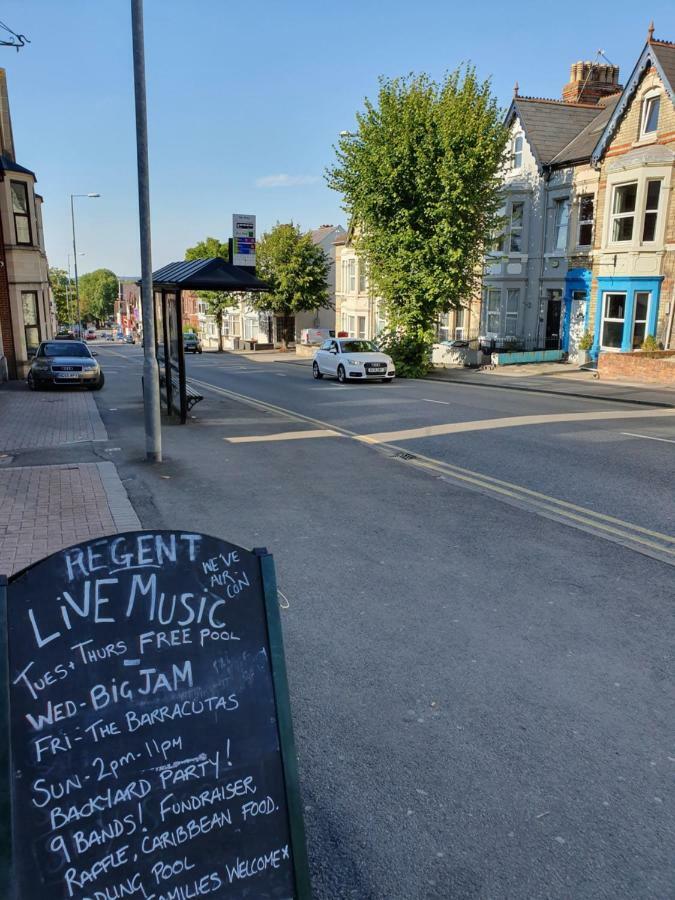 REGENT
WE'VE
AIR-
CON
LiVE MUSIC
TUES + THURS FREE POOL
-
WED - BIG JAM
FRI - THE BARRACUTAS
SUN - 2PM - 11PM
BACKYARD PARTY!
9 BANDS! FUNDRAISER
RAFFLE, CARIBBEAN FOOD.
POOL
FAMILIES WELCOME x